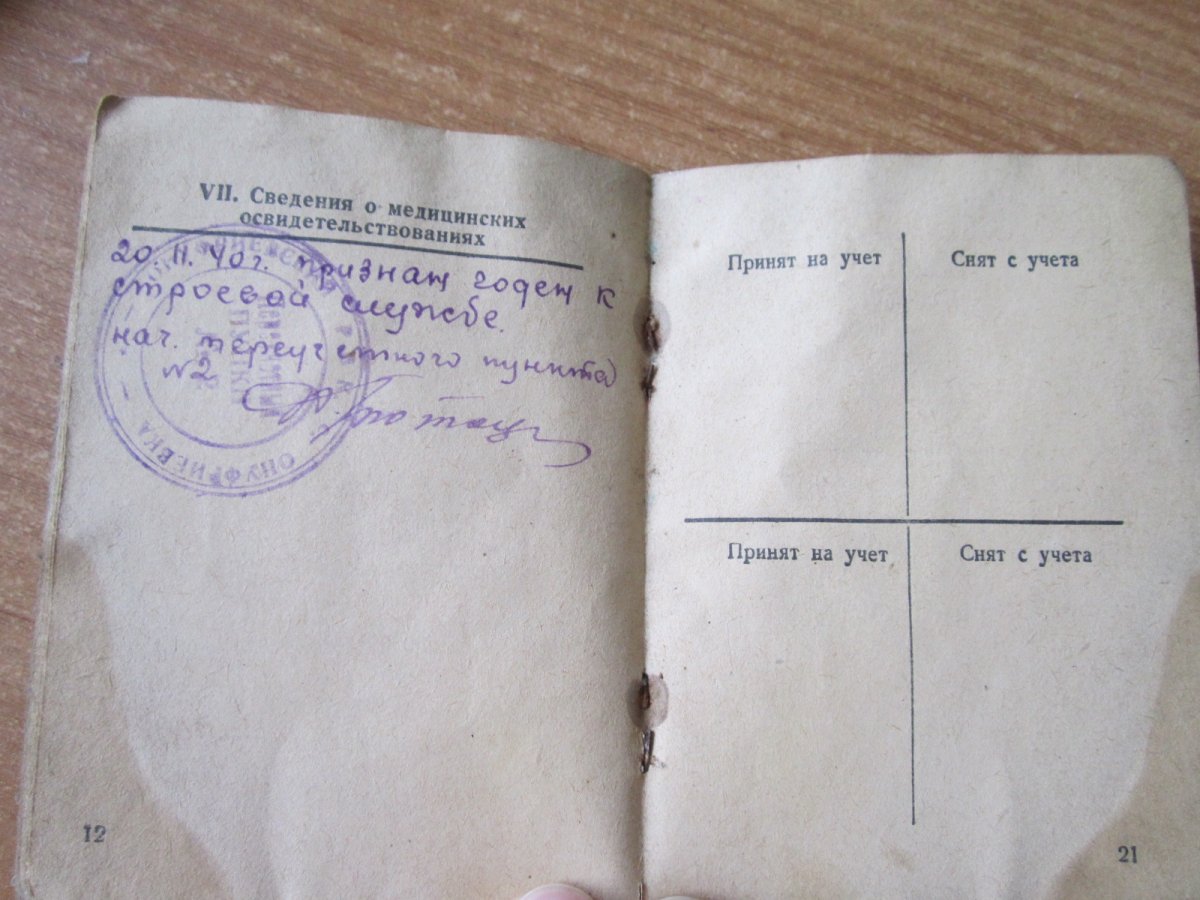 VII. Сведения о медицинских
освидетельствованиях
20. II. 40 г. признан годен к
строевой службе.
нач. переучетного пункта
№2
ОНУФРИЕВКА
12
Принят на учет
Снят с учета
Принят на учет
Снят с учета
21